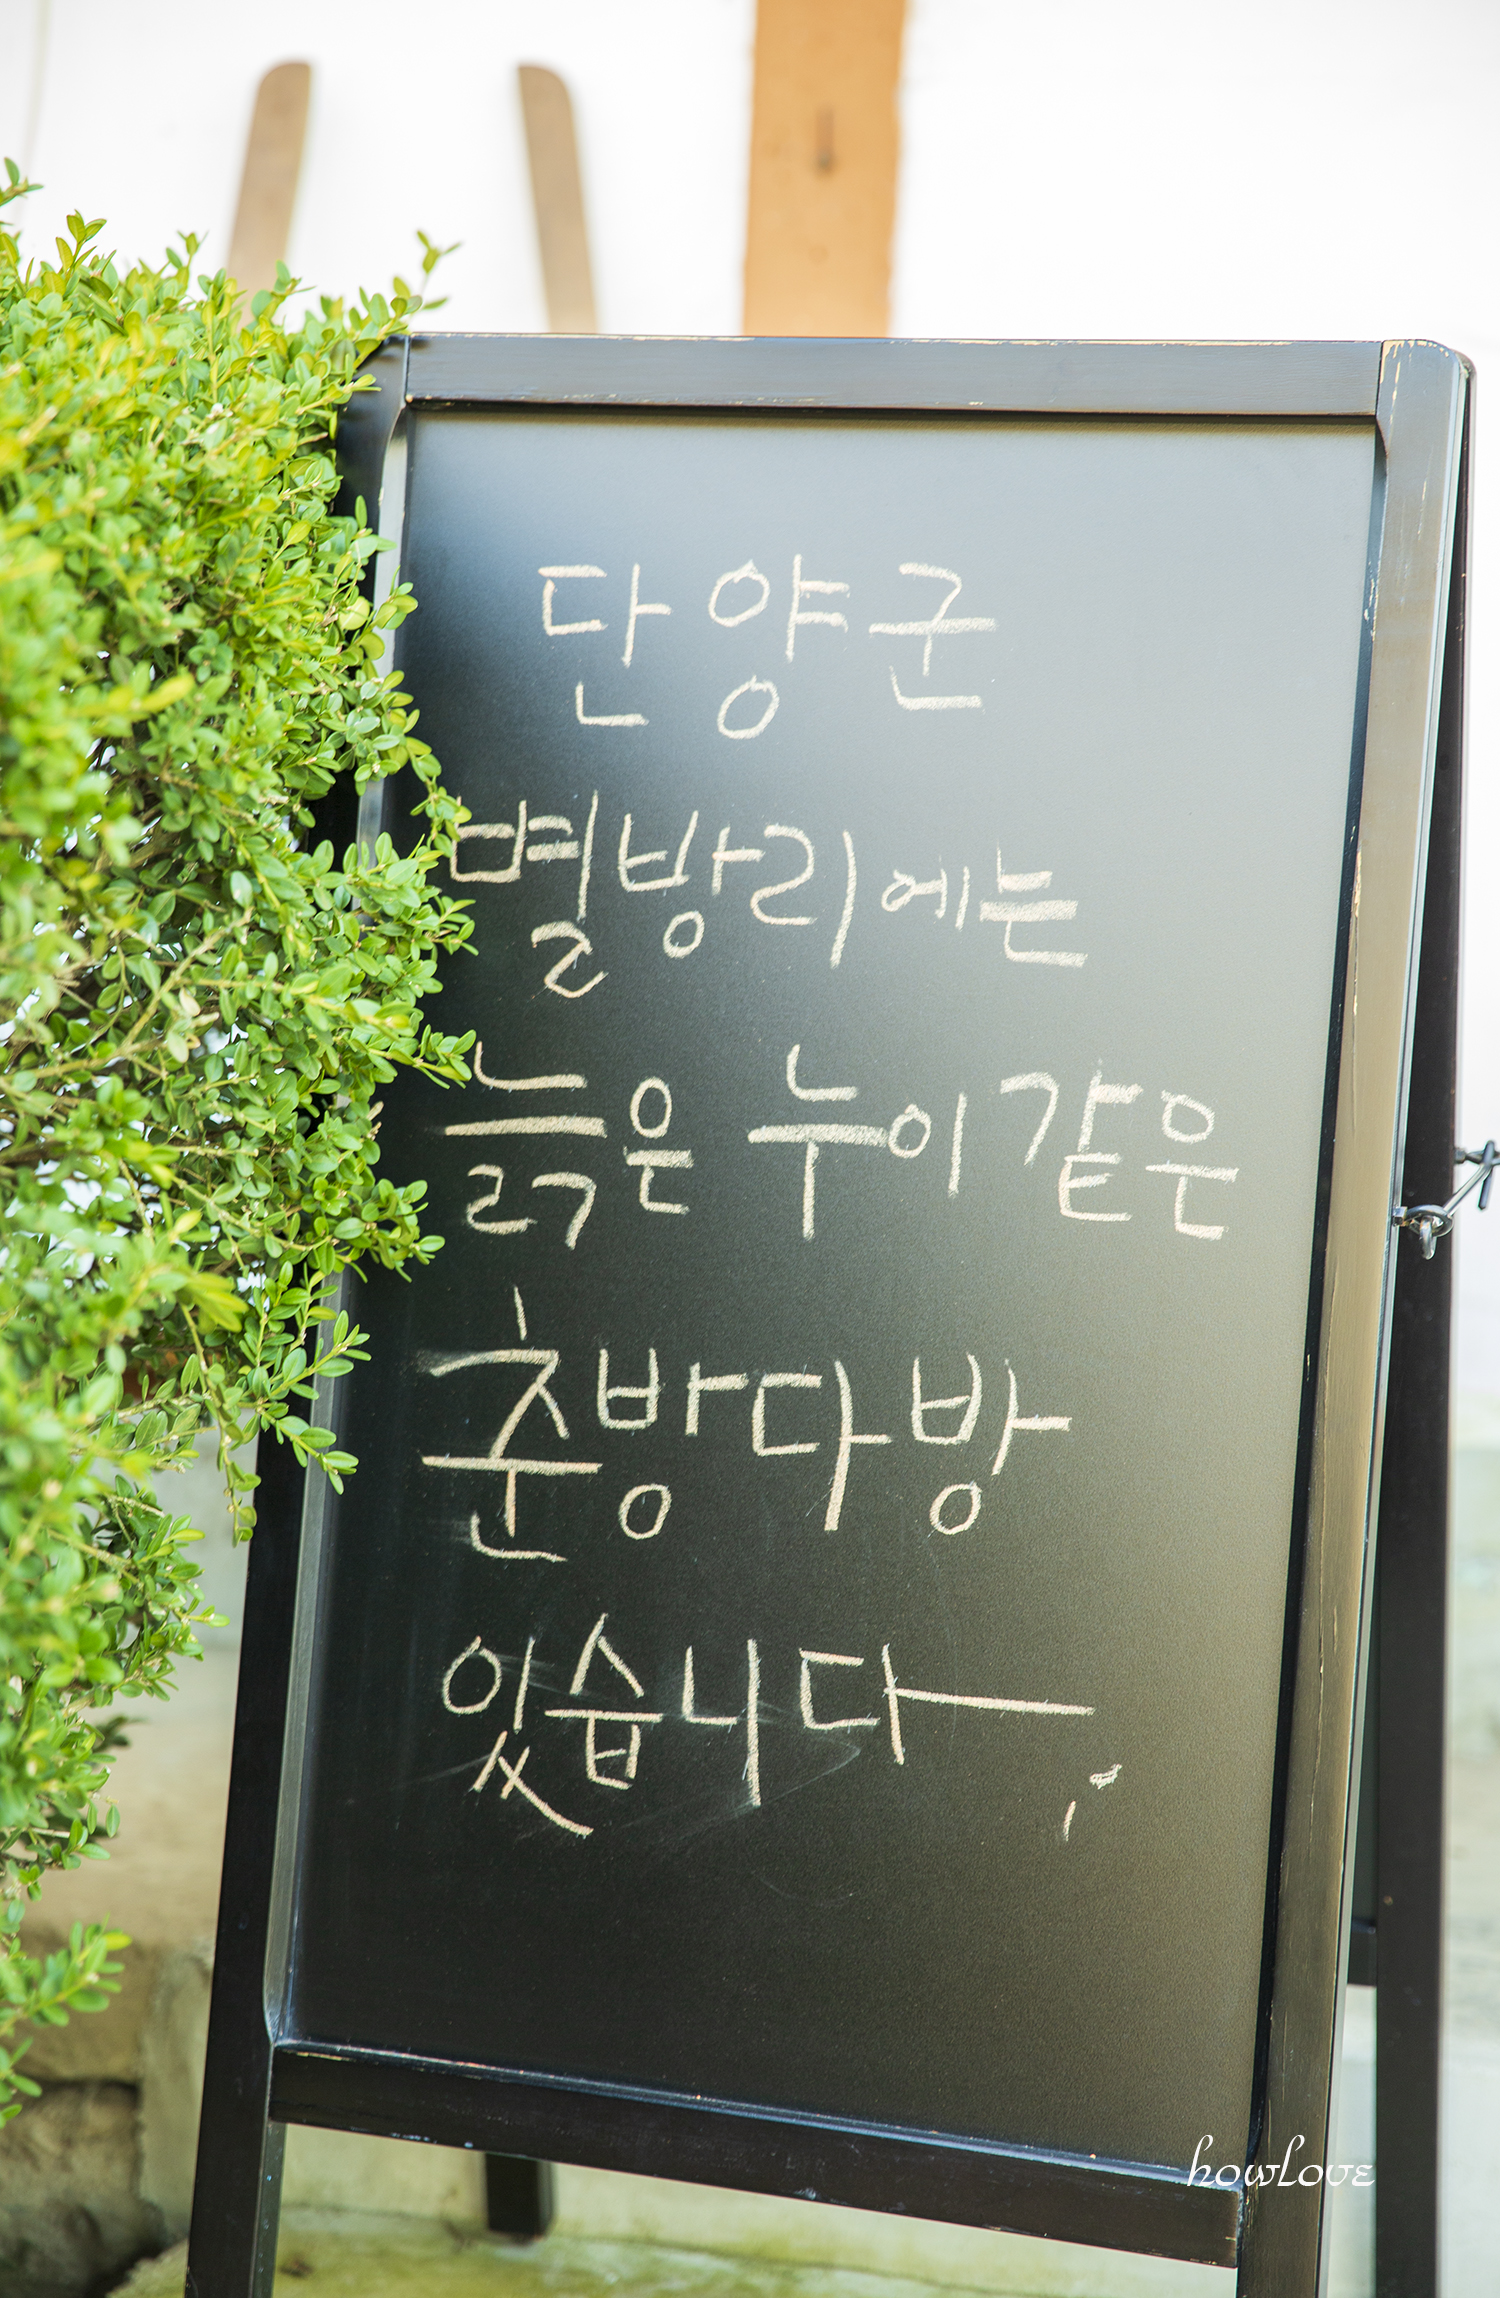 단양군
별방리에는
늙은 누이 같은
춘방다방
있습니다
howLove